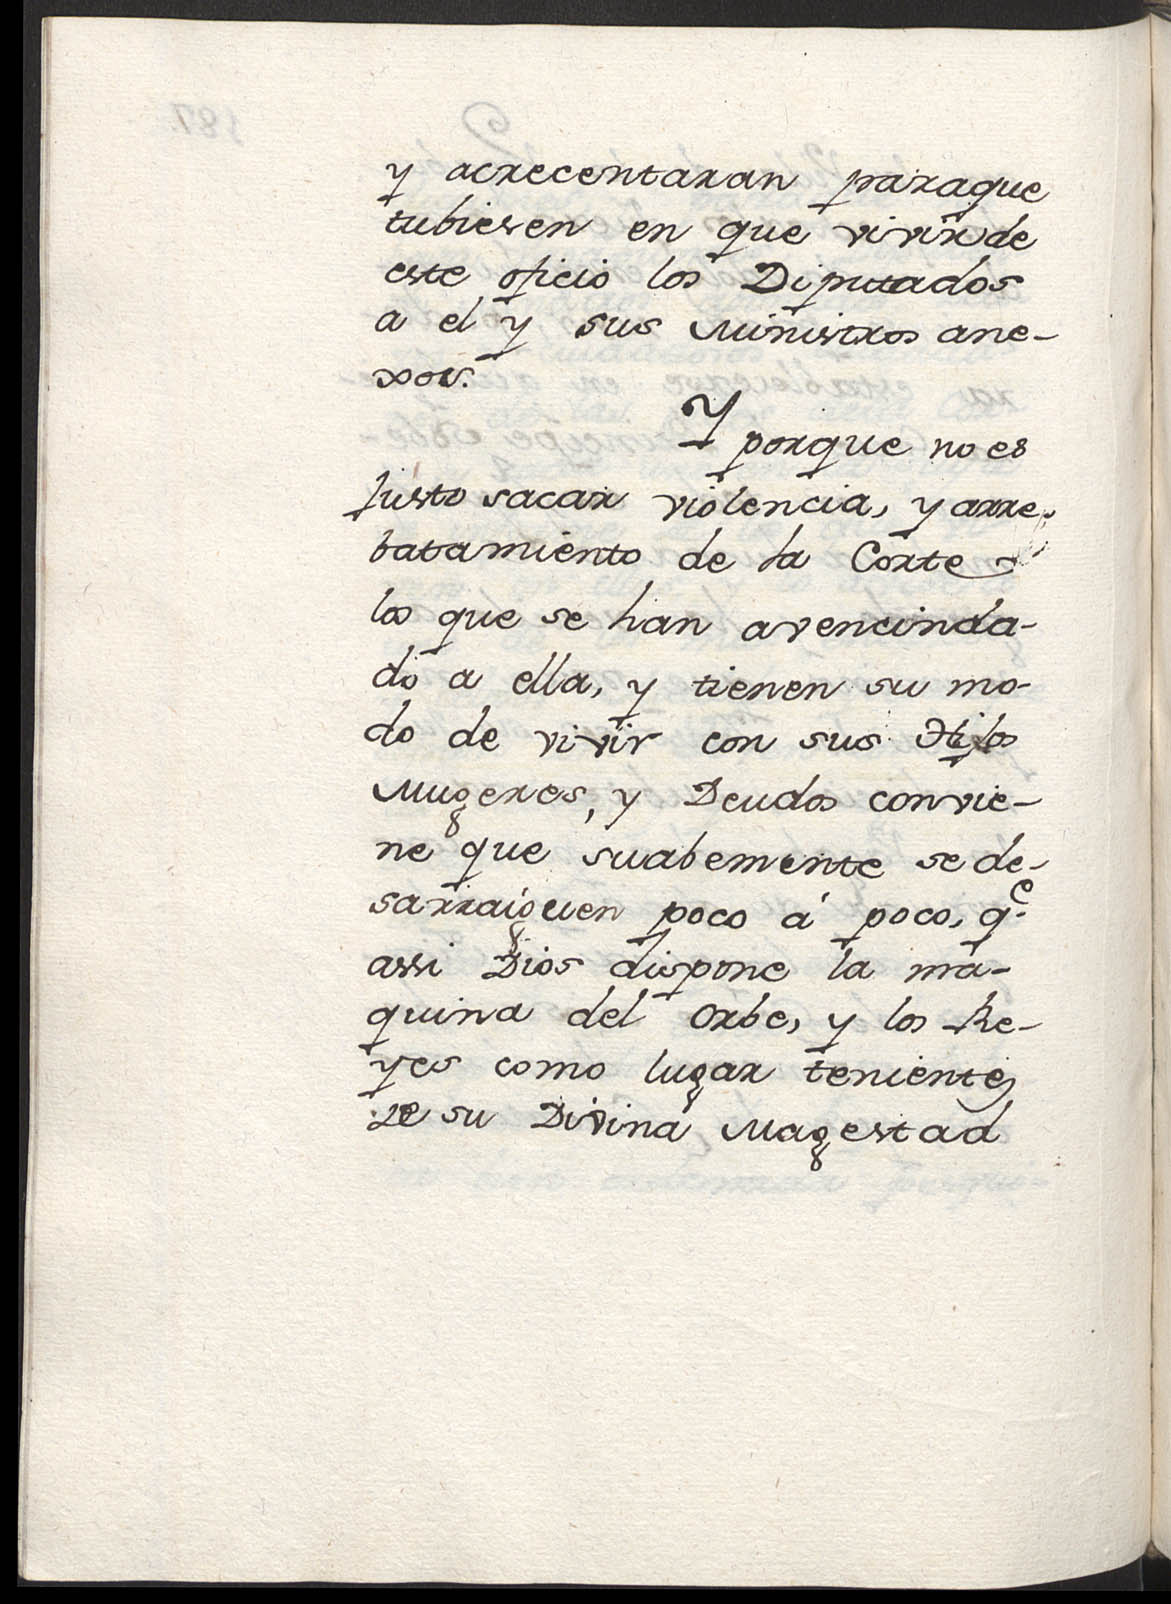 y acrecentaran paraque
tubiesen en que vivir de
este oficio los Diputados
a el y sus Ministros ane-
xos.
Y porque no es
justo sacar violencia, y arre-
batamiento de la Corte a
los que se han avencinda-
do a ella, y tienen su mo-
do de vivir con sus Hijos
Mugeres, y Deudos convie-
ne que suabemente se de-
sarraiguen poco á poco, q.e
assi Dios dispone la ma-
quina del Orbe, y los Re-
yes como lugar tenientes
de su Divina Magestad